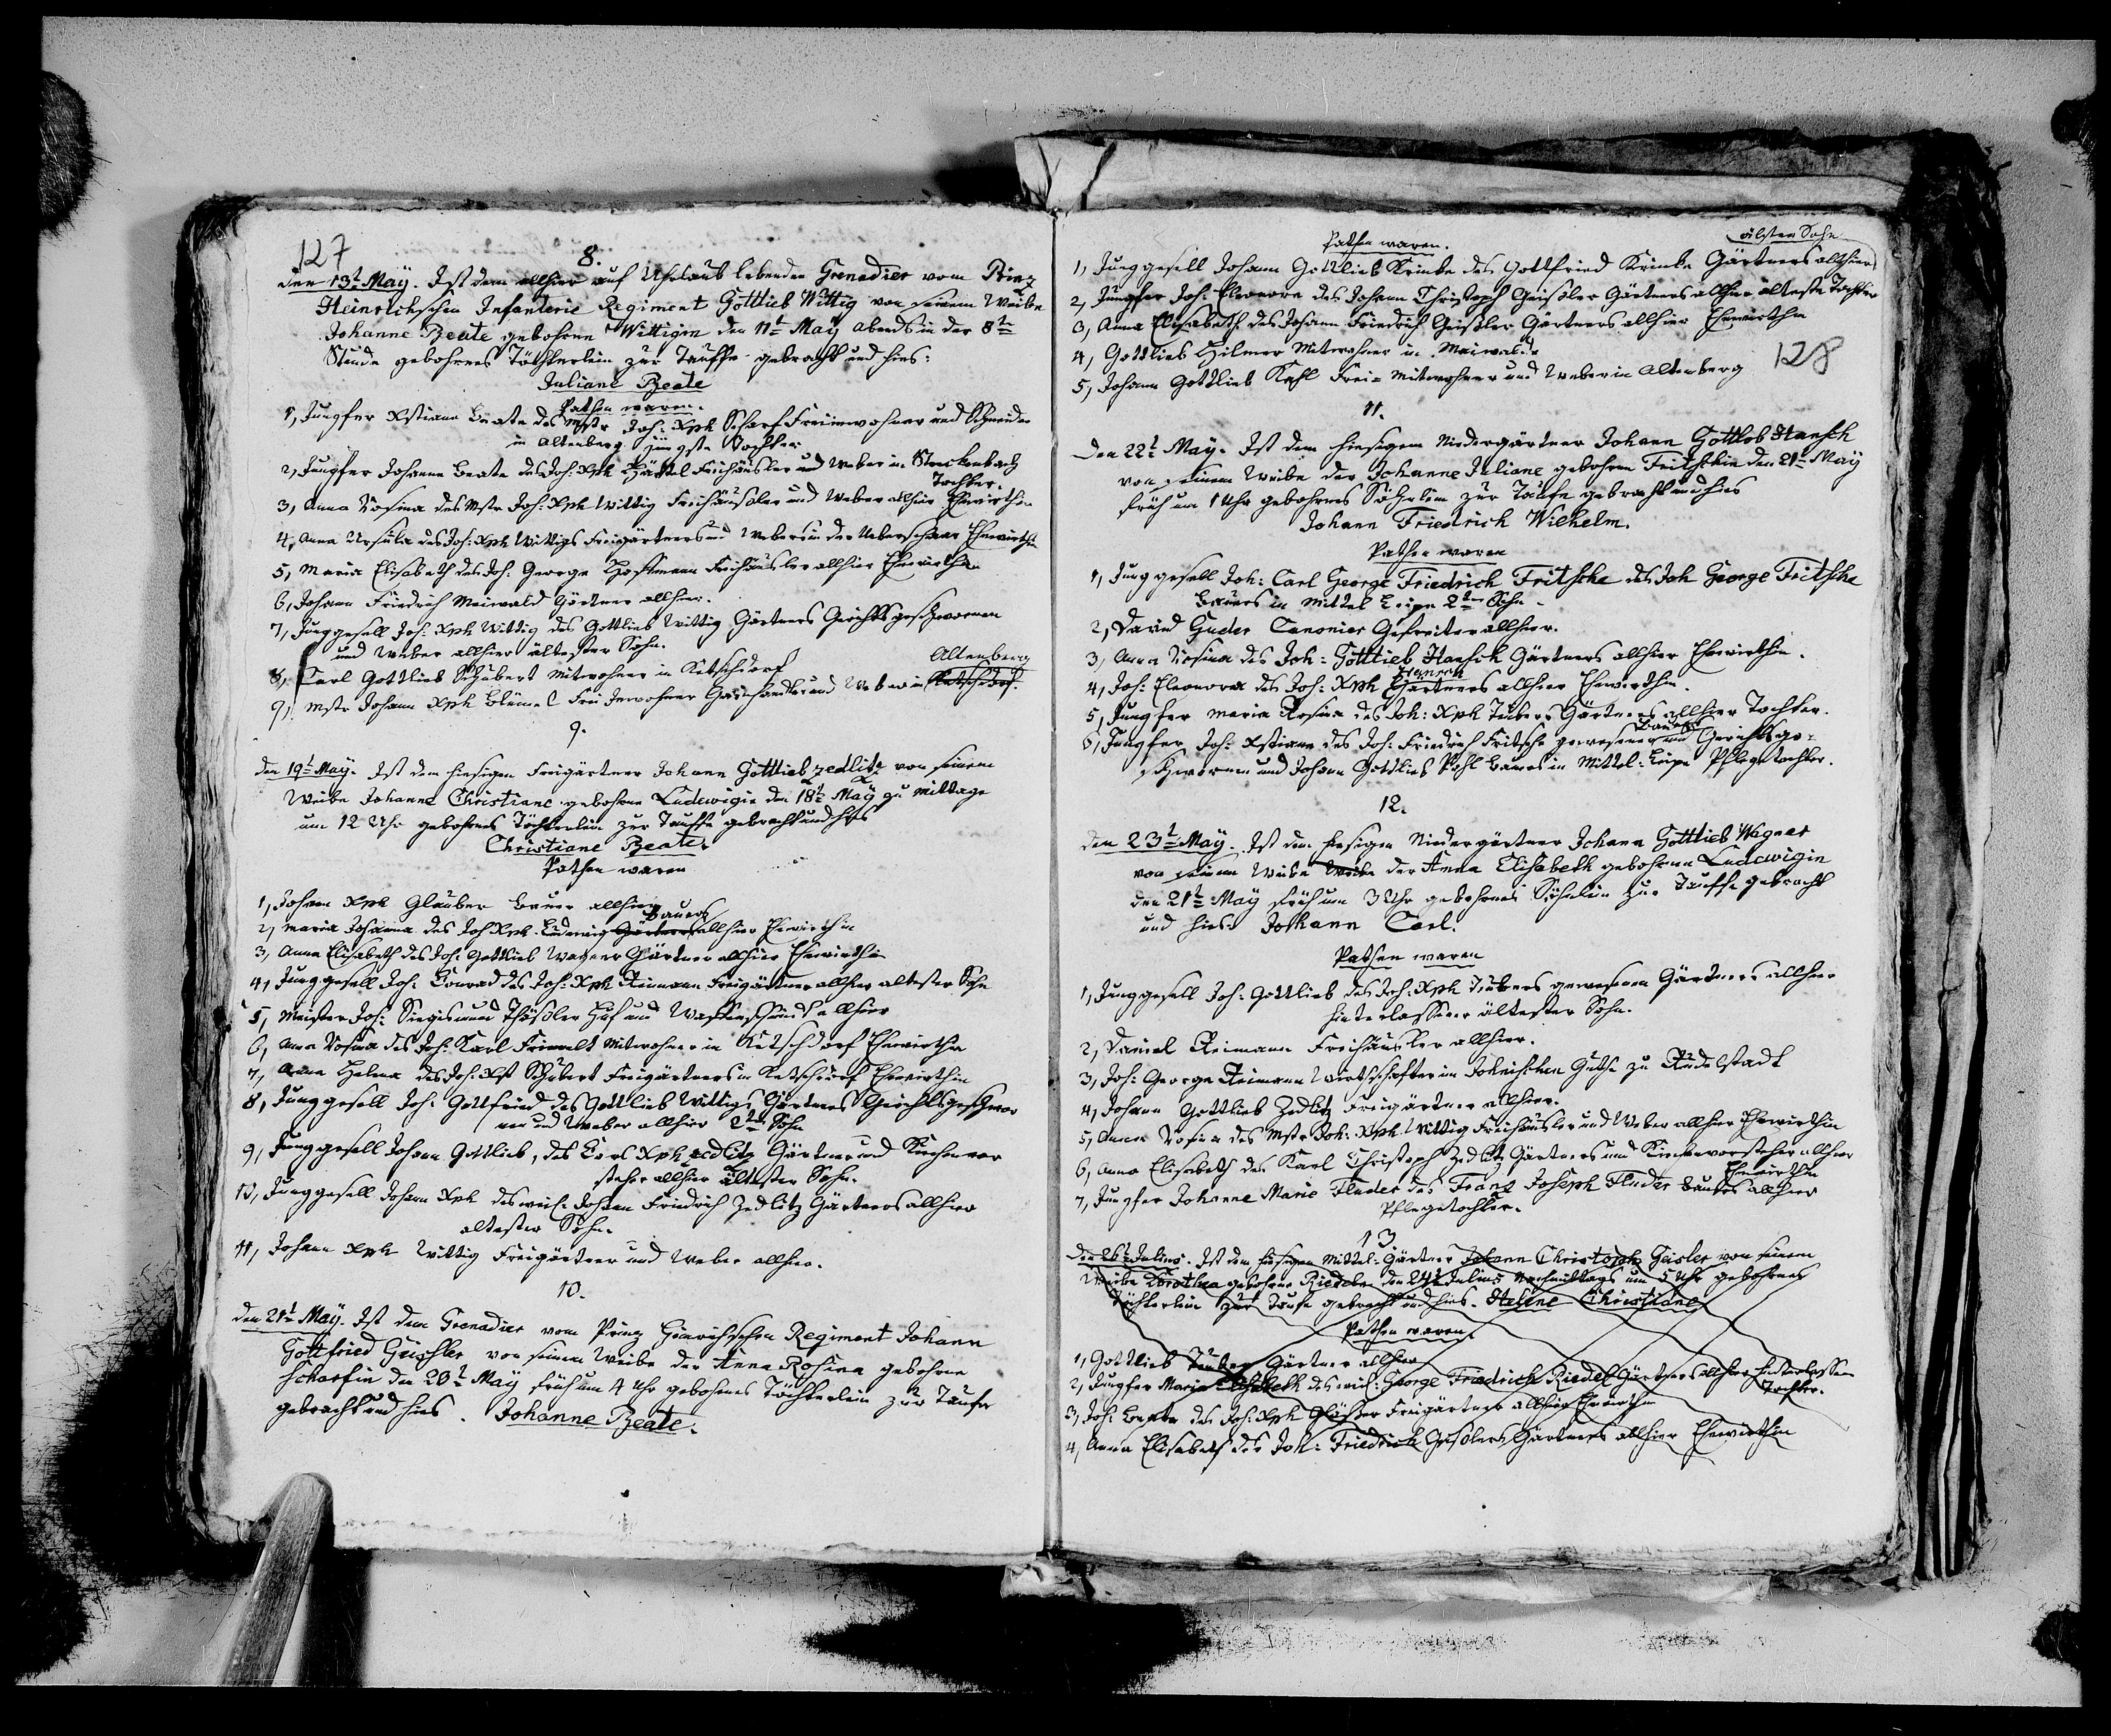 127
8.
Den 13t May. Ist dem allhier auf Uhrlaub lebenden Grenadier vom Prinz
Heinrichschen Infanterie Regiment Gottlieb Wittig von seinem Weibe
Johanne Beate gebohrne Wittigin den 11t May abends in der 8ten
Stunde gebohrnes Töchterlein zur Tauffe gebracht und hies:
Juliane Beate
Pathen waren.
1, Jungfer Xstiana Beate des Mstr Joh: Xph Scharf Freiinwohner und Schneider
in Altenberg jüngste Tochter
2, Jungfer Johanna Beate des Joh: Xph Freihäusler und Weber in Streckenbach
Tochter.
3, Anna Rosina des Mstr Joh: Xph Wittig Freihäusler und Weber allhier Ehewirthin
4, Anna Ursula des Joh: Xph Wittigs Freigärtners und Webers in der Ueberschaar Ehewirthin
5, Maria Elisabeth des Joh: George Hoffmann Freihäusler allhier Ehewirthin
6, Johann Friedrich Maiwald Gärtner allhier.
7, Junggesell Joh: Xph Wittig des Gottlieb Wittig Gärtners Gerichtsgeschwornen
und Weber allhier ältester Sohn.
8, Carl Gottlieb Schubert Mitwohner in Ketschdorf
Altenberg
9, Mstr Johann Xph Blümel Frei Inwohner und Weber in Ketschdorf.
9.
Den 19t May. Ist dem hiesigen Freigärtner Johann Gottlieb Zedlitz von seinem
Weibe Johanne Christiane gebohrne Ludewigin den 18t May zu Mittage
um 12 Uhr gebohrnes Töchterlein zur Tauffe gebracht und hies
Christiane Beate.
Pathen waren
1, Johann Xph Glauber Bauer allhier
Bauers
2, Maria Johanna des Joh Xph Ludewig Gärtners allhier Ehewirthin
3, Anna Elisabeth des Joh: Gottlieb Wagner Gärtner allhier Ehewirthin
4, Junggesell Joh: Conrad des Joh: Xph Reimann Freigärtner allhier ältester Sohn
5, Meister Joh: Siegismund Huf und Waffenschmidt allhier
6, Anna Rosina des Joh: Karl Mitwohner in Ketschdorf Ehewirthin
7, Anna Helena des Joh: Xst Schubert Freigärtners in Ketschdorf Ehewirthin
8, Junggesell Joh: Gottfried des Gottlieb Wittigs Gärtners Gerichtsgeschwor
nen und Weber allhier 2ter Sohn
9, Junggesell Johann Gottlieb, des Carl Xph Zedlitz Gärtner und Kirchenvor
steher allhier ältester Sohn.
10, Junggesell Johann Xph des weil: Johann Friedrich Zedlitz Gärtners allhier
ältester Sohn.
11, Johann Xph Wittig Freigärtner und Weber allhier.
10.
Den 21t May. Ist dem Grenadier vom Prinz Heinrichschen Regiment Johann
Gottfried Geissler von seinem Weibe der Anna Rosina gebohrne
Scharfin den 20t May früh um 4 Uhr gebohrnes Töchterlein zur Taufe
gebracht und hies. Johanne Beate.
Pathen waren.
älster Sohn
1, Junggesell Johann Gottlieb Krinke des Gottfried Krinke Gärtners allhier
2, Jungfer Joh: Eleonora des Johann Christoph Geissler Gärtners allhier älteste Tochter
3, Anna Elisabeth des Johann Friedrich Geissler Gärtners allhier Ehewirthin
4, Gottlieb Hilmer Mitwohner in Maiwaldau
128
5, Johann Gottlieb Kahl Frei-Mitwohner und Weber in Altenberg
11.
Den 22t May. Ist dem hiesigen Niedergärtner Johann Gottlob Hansch
von seinem Weibe der Johanne Juliane gebohrne Fritschin den 21t May
früh um 1 Uhr gebohrnes Söhnlein zur Taufe gebracht und hies
Johann Friedrich Wilhelm.
Pathen waren
1, Junggesell Joh: Carl George Friedrich Fritsche des Joh George Fritsche
Bauers in Mittel Leipe 2ter Sohn
2, David Guder Canonier Gefreiter allhier.
3, Anna Rosina des Joh: Gottlieb Hansch Gärtners allhier Ehewirthin.
Hansch
4, Joh: Eleonora des Joh: Xph Gärtners allhier Ehewirthin.
5, Jungfer Maria Rosina des Joh: Xph Teubers Gärtners allhier Tochter.
Bauers
6, Jungfer Joh: Xstiana des Joh: Friedrich Fritsche gewesenen und Gerichtsge-
schwornen und Johann Gottlieb Pohl Bauers in Mittel-Leipe Pflegetochter.
12.
Den 23t May. Ist dem hiesigen Niedergärtner Johann Gottlieb Wagner
von seinem Weibe Weibe der Anna Elisabeth gebohrne Ludewigin
den 21t May früh um 3 Uhr gebohrnes Söhnlein zur Tauffe gebracht
und hies: Johann Carl.
Pathen waren
1, Junggesell Joh: Gottlieb des Joh: Xph Teubers gewesenen Gärtners allhier
hinterlassener ältester Sohn.
2, Daniel Reimann Freihäusler allhier.
3, Joh: George Reimann Wirthschafter im Guthe zu Rudelstadt
4, Johann Gottlieb Zedlitz Freigärtner allhier.
5, Anna Rosina des Mstr Joh: Xph Wittig Freihäusler und Weber allhier Ehewirthin
6, Anna Elisabeth des Karl Christoph Zedlitz Gärtners und Kirchenvorsteher allhier
Ehewirthin
7, Jungfer Johanne Marie Fluder des Franz Joseph Fluder Bauers allhier
Pflegetochter.
13.
Den 26t Julius. Ist dem hiesigen Mittel-Gärtner Johann Christoph Geisler von seinem
Weibe Dorothea gebohrne Riedeln den 24t Julius Nachmittags um 5 Uhr gebohrnes
Töchterlein zur Taufe gebracht und hies. Helene Christiane
Pathen waren.
1, Gottlieb Teuber Gärtner allhier
2, Jungfer Maria Elisabeth des weil: George Friedrich Riedel Gärtners allhier hinterlassene
Tochter.
3, Joh: Beate des Joh: Xph Freigärtner allhier Ehewirthin
4, Anna Elisabeth des Joh: Friedrich Geislers Gärtners allhier Ehewirthin